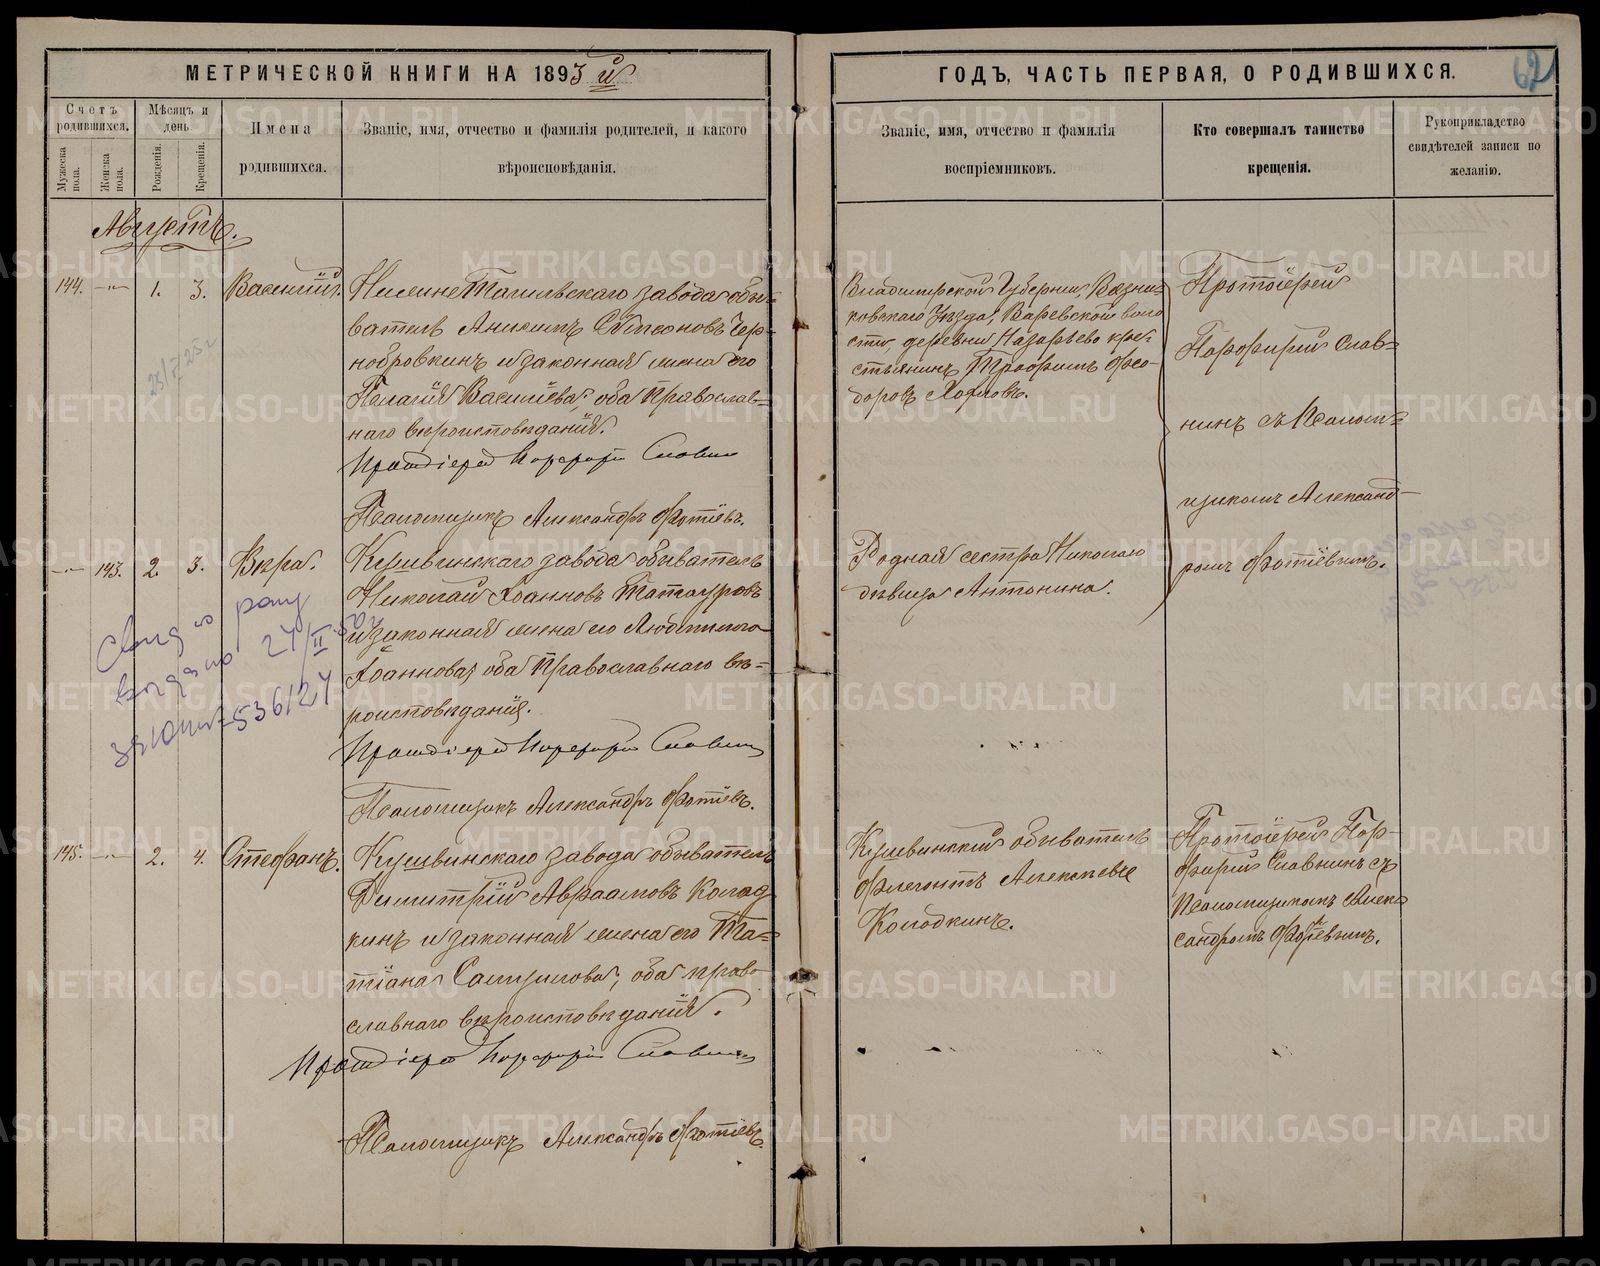 МЕТРИЧЕСКОЙ КНИГИ НА 1893й
ГОДЪ, ЧАСТЬ ПЕРВАЯ, О РОДИВШИХСЯ.
62
Счетъ родившихся.
Мѣсяцъ и день
Имена родившихся.
Званіе, имя, отчество и фамилія родителей, и какого
вѣроисповѣданія.
Мужеска пола.
Женска пола.
Рожденія.
Крещенія.
Званіе, имя, отчество и фамилія
воспріемниковъ.
Кто совершалъ таинство
крещенія.
Рукоприкладство
свидѣтелей записи по
желанію.
Августъ.
144. —"— 1. 3. Василій. Нижне Тагильскаго завода обы=
ватель Анисимъ Симеоновъ Чер=
нобровкинъ и законная жена его
Пелагія Васильева; оба Православ=
наго вѣроисповѣданія.
Протоіерей Порфирій Славнинъ
Псаломщикъ Александръ Фотіевъ.
Владимірской Губерніи, Вязни=
ковскаго Уѣзда, Варевской воло
сти, деревни Назарьево кре=
стьянинъ Трофимъ Фео=
доровъ Хохловъ.
Протоіерей
Порфирій Слав=
нинъ съ Псалом=
щикомъ Александ-
ромъ Фотіевымъ.
—"— 143. 2. 3. Вѣра. Кушвинскаго завода обыватель
Николай Іоанновъ Татауровъ
и законная жена его Любимила
Іоаннова; оба Православнаго вѣ=
роисповѣданія.
Протоіерей Порфирій Славнинъ
Псаломщикъ Александръ Фотіевъ.
Родная сестра Николаю
дѣвица Антонина.
28/V 25 г
выдано 24/II 50г
145. —"— 2. 4. Стефанъ. Кушвинскаго завода обыватель
Димитрій Авраамовъ Колод
кинъ и законная жена его Та=
тіана Самуилова; оба право
славнаго вѣроисповѣданія.
Протоіерей Порфирій Славнинъ
Псаломщикъ Александръ Фотіевъ.
Кушвинскій обыватель
Флегонтъ Алексѣевъ
Колодкинъ.
Протоіерей Пор-
фирій Славнинъ съ
Псаломщикомъ Алек
сандромъ Фотіевымъ.
METRIKI.GASO-URAL.RU